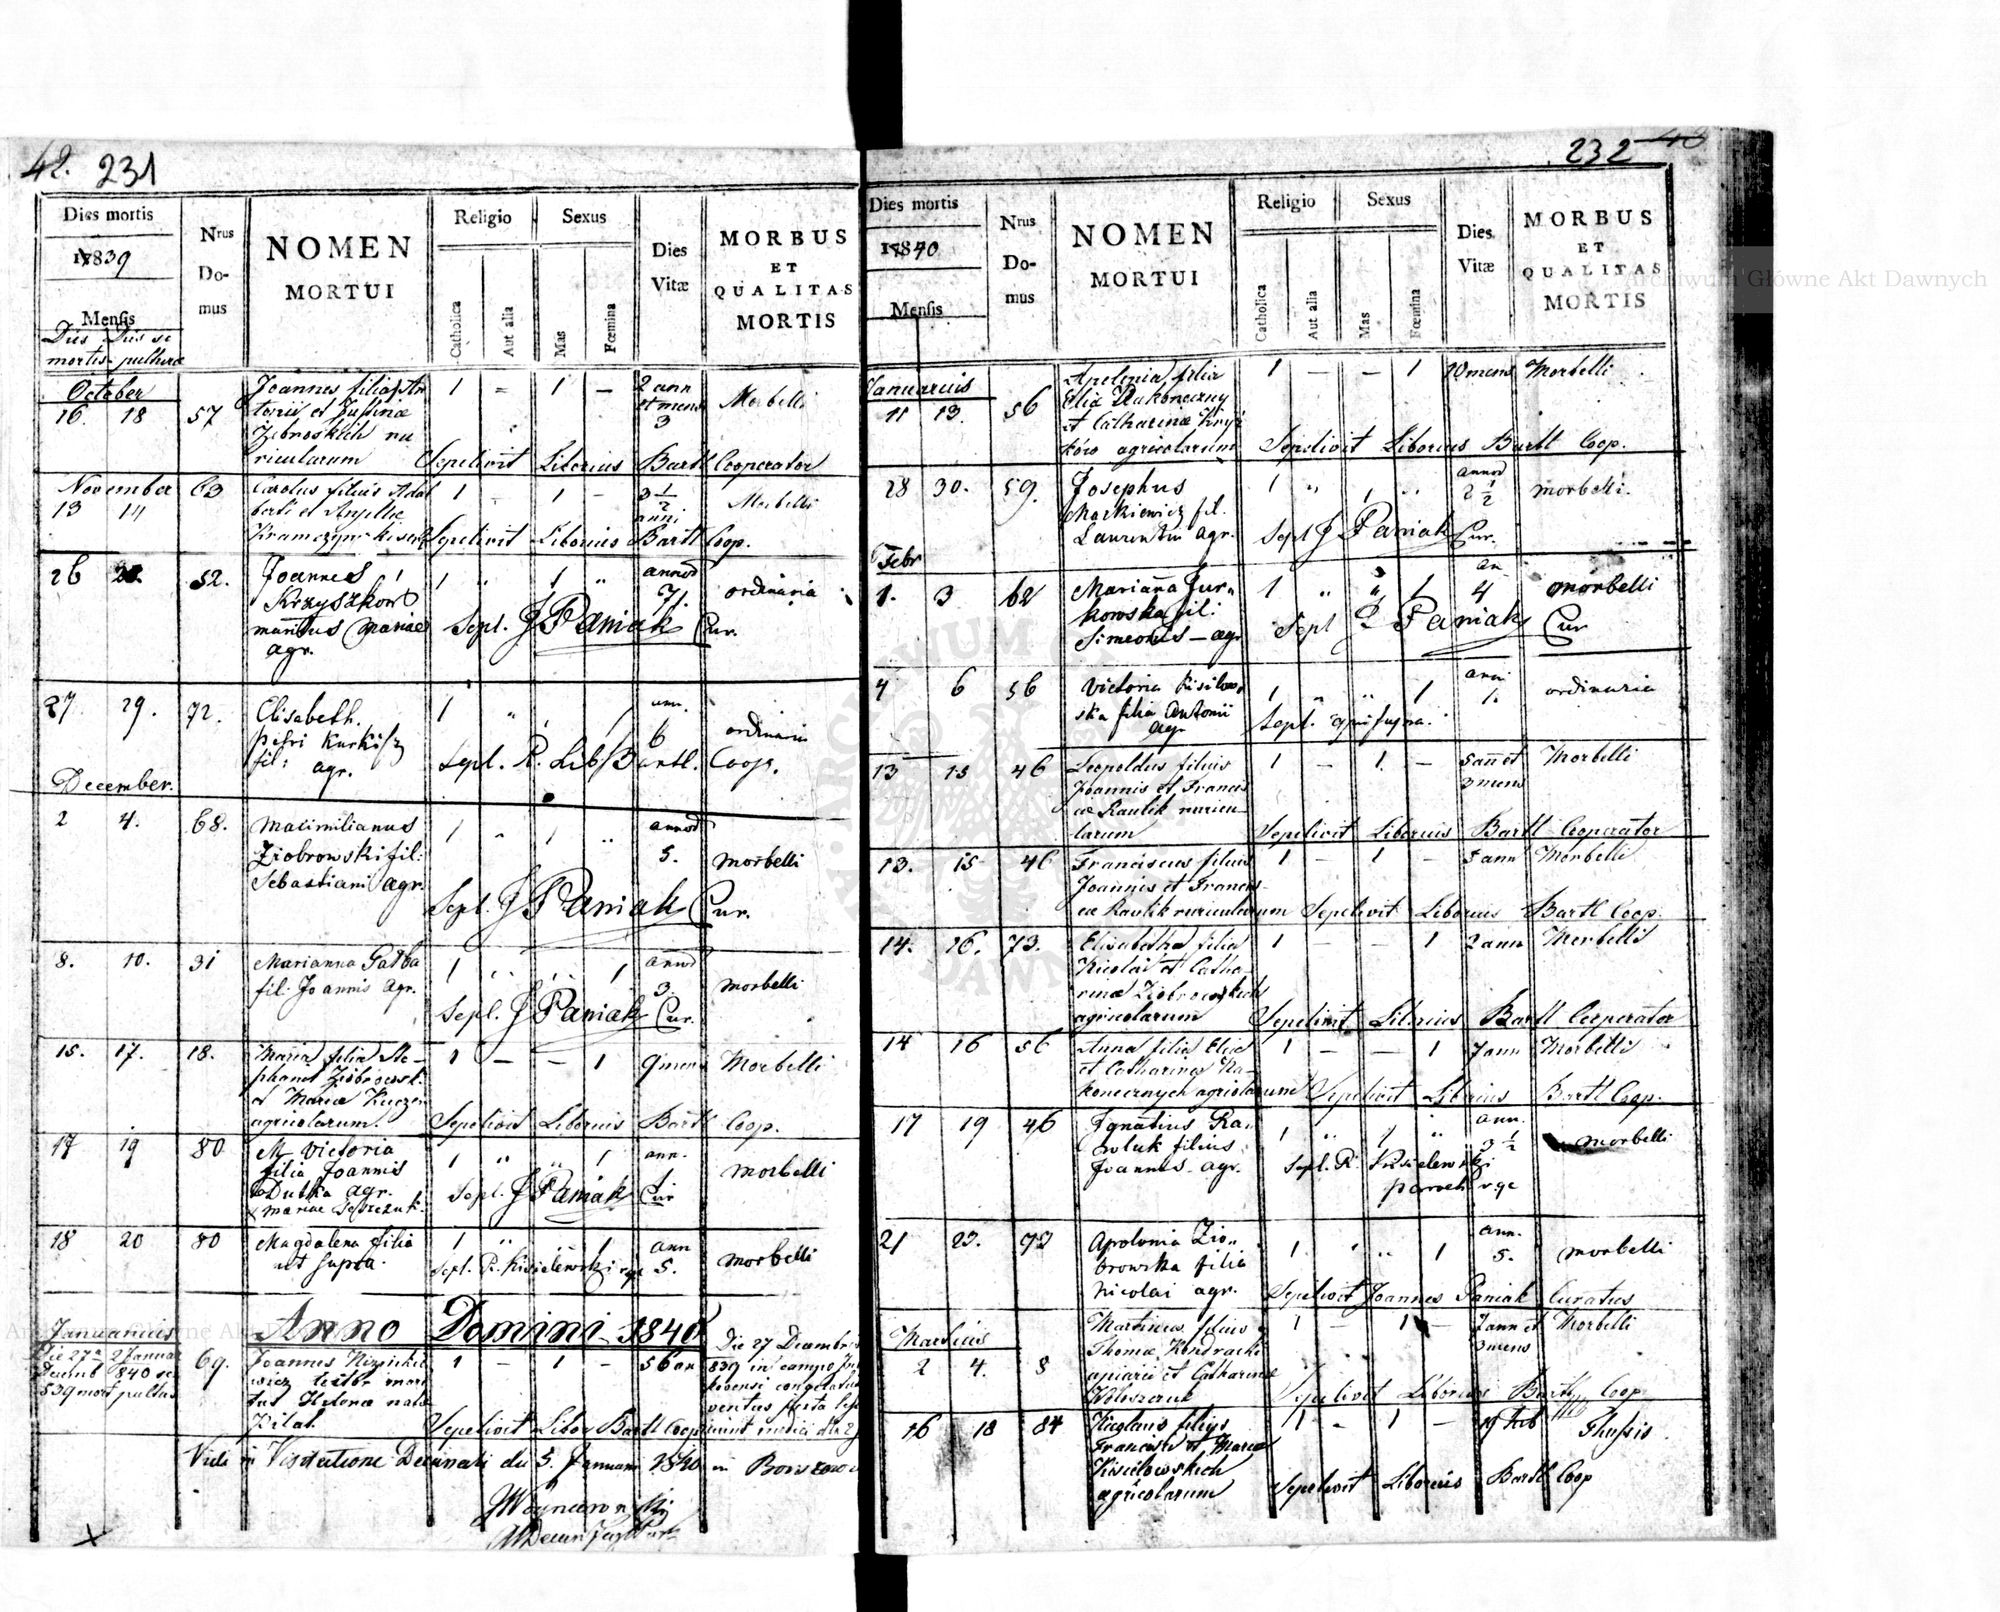 42. 231
Dies mortis
1839
Mensis
Dies Dies se
mortis pulturæ
Nrus
Do-
mus
NOMEN
MORTUI
Religio
Catholica
Aut alia
Sexus
Mas
Fœmina
Dies
Vitæ
MORBUS
ET
QUALITAS
MORTIS
October
16. 18 57
Joannes filius An
tonii et Justinæ
ricularum
1 - 1 -
2 ann
et mens
3
Morbelli
Sepelivit Liborius Bartl Cooperator
November
13 14 63
Carolus filius Adal
berti et
1 - 1 -
3 1/2
anni
Morbelli
Sepelivit Liborius Bartl Coop.
26 52.
Joannes
Krzyszkow
maritus Mariae
agr.
1 " 1 "
annos
71.
ordinaria
Sepl. J Paniak Cur.
27 29. 72.
Elisabeth.
Petri Kurkisz
fil: agr.
1 "
ann.
6
ordinaria
Sepl. R. Lib. Bartl. Coop.
December.
2 4. 68.
Maximilianus
Ziobrowski fil:
Sebastiani agr.
1 " 1 "
annos
5.
morbelli
Sepl. J Paniak Cur.
8. 10. 31
Marianna Gałba
fil. Joannis agr.
1 " " 1
annos
3.
morbelli
Sepl. J Paniak Cur.
15. 17. 18.
Maria filia Ste-
phani Ziobrowsk.
et Mariæ
agricolarum.
1 - - 1
9 mens
Morbelli
Sepelivit Liborius Bartl Coop.
17 19 80
M Victoria
filia Joannis
Dutka agr.
1 " " 1
ann.
1.
morbelli
Sepl. J Paniak Cur
18 20 80
Magdalena filia
ut supra.
1 " 1
ann
5.
morbelli
Sepl. R. Kisielewski
Anno Domini 1840
Januarius
Die 27a 2 Januar
Decemb 840 se
839 mort pultus
69.
Joannes
1 - 1 -
56 an
Die 27 Decembris
839 in campo
Sepelivit Libor Bartl Coop
Vidi in Visitatione Decanali die 5. Januarii 1840 in
232
Dies mortis
1840
Mensis
Nrus
Do-
mus
NOMEN
MORTUI
Religio
Catholica
Aut alia
Sexus
Mas
Fœmina
Dies
Vitæ
MORBUS
ET
QUALITAS
MORTIS
Januarius
11 13. 56
Apolonia filia
Eliæ Nakoneczny
et Catharinæ
agricolarum
1 - - 1
10 mens
Morbelli
Sepelivit Liborius Bartl Coop.
28 30. 59.
Josephus
Markiewicz fil.
Laurentii agr.
1 " 1 "
annos
2 1/2
morbelli.
Sepl J Paniak Cur.
Febr
1. 3 62
Marianna Jur-
kowska fil:
Simeonis - agr
1 " " 1
an
4
morbelli
Sepl J Paniak Cur
4 6 56
Victoria Kisilow-
ska filia Antonii
agr
1 " " 1
anni
1.
ordinaria
Sepl. qui supra.
13 15 46
Leopoldus filius
Joannis et Francis
cæ Rawlik ruricu-
larum
1 - 1. -
5 ann et
3 mens
Morbelli
Sepelivit Liborius Bartl Cooperator
13. 15 46
Franciscus filius
Joannis et Francis-
cæ Rawlik ruricularum
1 - 1 -
5 ann
Morbelli
Sepelivit Liborius Bartl Coop.
14. 16. 73.
Elisabetha filia
Nicolai et Catha-
rinæ Ziobrowskich
agricolarum
1 - - 1
2 ann
Morbelli
Sepelivit Liborius Bartl Cooperator
14 16 56
Anna filia Eliæ
et Catharinæ Na-
konecznych agricolarum
1 - - 1
7 ann
Morbelli
Sepelivit Liborius Bartl Coop.
17 19 46
Ignatius Ra-
wluk filius
Joannis agr.
1 " 1 "
ann.
3 1/2
morbelli
Sepl. R. Kisielewski
21 23. 73
Apolonia Zio-
browska filia
Nicolai agr.
1. " " 1
ann.
5.
morbelli
Sepelivit Joannes Paniak Curatus
Martius
2 4. 8
Martinus filius
Thomæ Kondracki
et Catharinæ
Woloszczuk
1 1
7 ann et
3 mens
Morbelli
Sepelivit Liborius Bartl Coop
16 18 84
filius
Francisci et Mariæ
Kisielowskich
agricolarum
1 - 1 -
19 heb
Thussis
Sepelivit Liborius Bartl Coop
Archiwum Główne Akt Dawnych